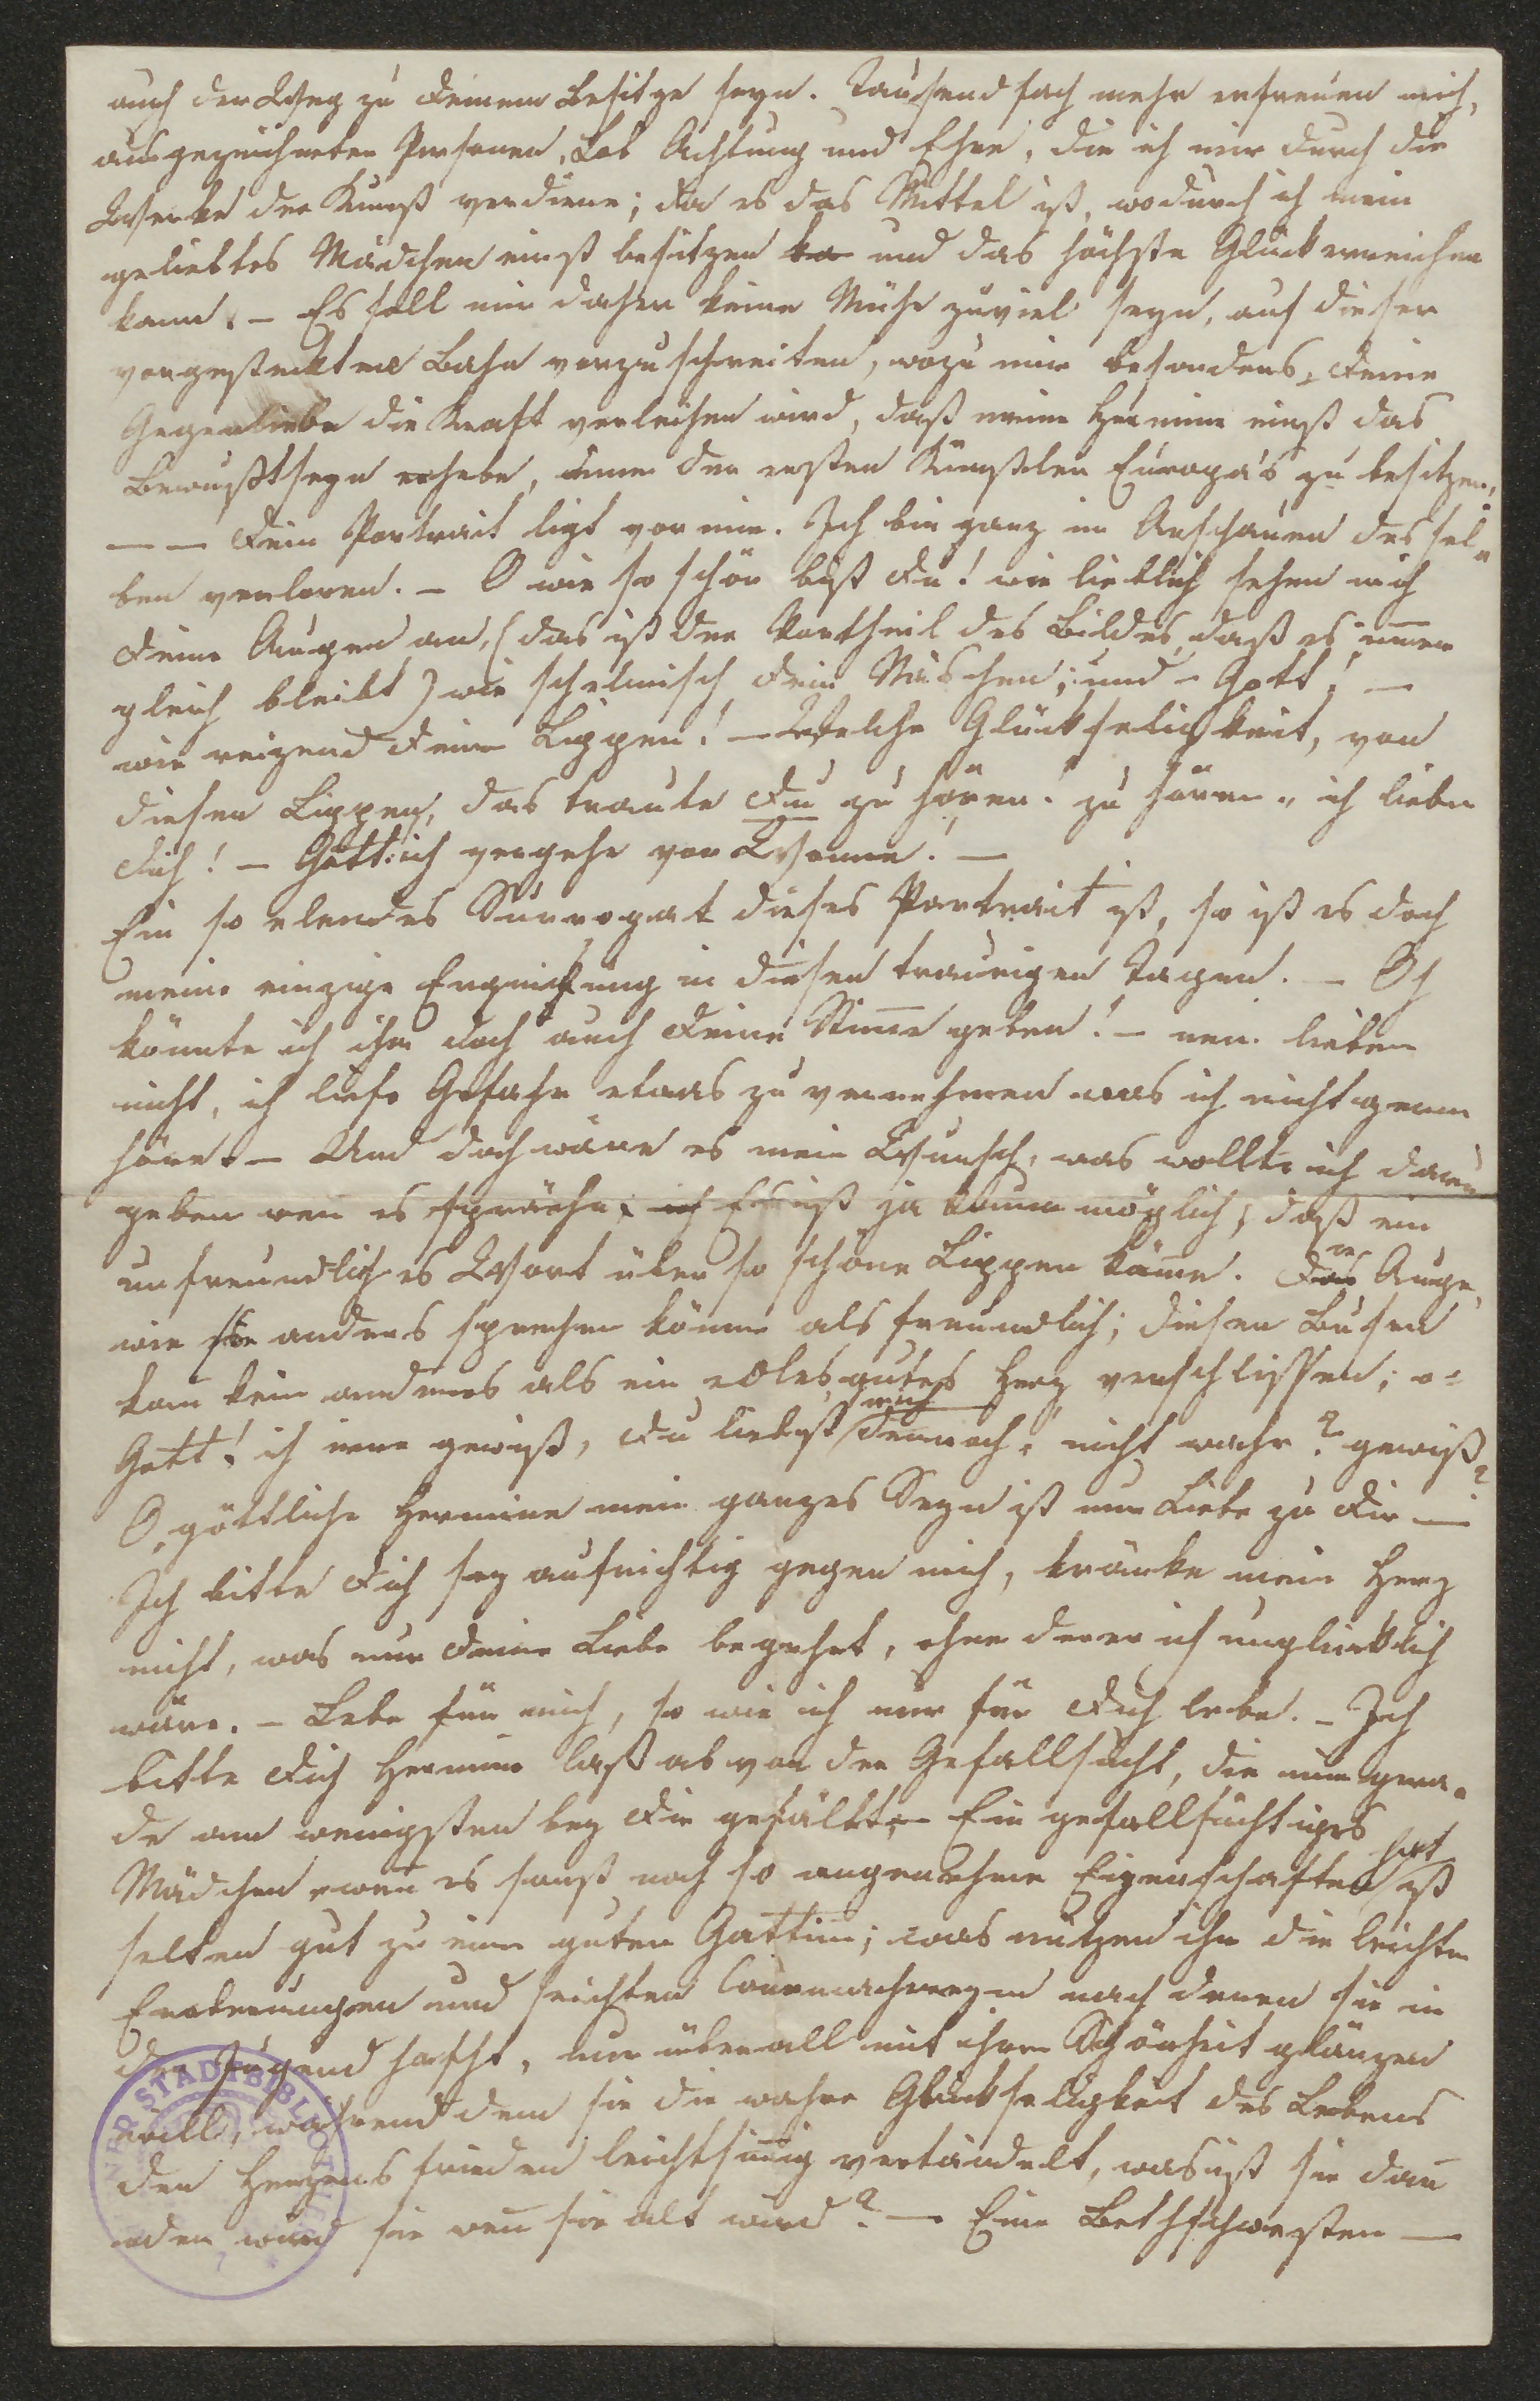 auch der Weg zu Deinem Besitze seyn. Tausendfach mehr erfreuen mich,
ausgezeichneter Personen, Lob Achtung und Ehre, die ich mir durch die
Werke der Kunst verdiene; da es das Mittel ist, wodurch ich mein
geliebtes Mädchen einst besitzen ka und das höchste Glück erreichen
kann. – Es soll mir daher keine Mühe zuviel seyn, auf dieser
vorgesteckten Bahn vorzuschreiten, wozu mir besonders, Deine
Gegenliebe die Kraft verleihen wird, daß meine Hermine einst das
Bewußtseyn erhebe, einen der ersten Künstler Europa's zu besitzen,
— — Dein Portrait ligt vor mir. Ich bin ganz im Anschauen dessel-
ben verloren. – O wie so schön bist Du! wie lieblich sehen mich
Deine Augen an, (das ist der Vortheil des Bildes, daß es im̅er
gleich bleibt) wie schelmisch Dein Näschen; und – Gott! —
wie reizend Deine Lippen! – Welche Glückseligkeit, von
diesen Lippen, das traute Du zu hören! zu hören „ ich liebe
Dich! – Gott! ich vergehe vor Wonne! —
Ein so elendes Surrogat dieses Portrait ist, so ist es doch
meine einzige Erquickung in diesen traurigen Tagen. – Oh
könnte ich ihm doch auch Deine Stim̅e geben! – nein lieber
nicht, ich liefe Gefahr etwas zu vernehmen was ich nicht gerne
höre. – Und doch wäre es mein Wunsch, was wollte ich darum
geben wen̅ es spräche; ich Es ist ja kaum möglich, daß ein
unfreundliches Wort über so schöne Lippen käme. Das Auge,
wie sie anders sprechen könne als freundlich; diesen Busen
kan̅ kein anderes als ein edles, gutes Herz verschlissen; o
Gott! ich irre gewiß, Du liebst mich dennoch, nicht wahr? gewiß?
O, göttliche Hermine mein ganzes Seyn ist nur Liebe zu Dir —
Ich bitte Dich sey aufrichtig gegen mich, kränke mein Herz
nicht, was nur Deine Liebe begehrt, ohne derer ich unglücklich
wäre. – Lebe für mich, so wie ich nur für Dich lebe. – Ich
bitte Dich Hermine laß ab von der Gefallsucht, die mir gera-
de am wenigsten bey Dir gefällt. – Ein gefallsüchtiges
Mädchen wen̅ es sonst noch so angenehme Eigenschaften hat ist
selten gut zu einer guten Gattin; was nützen ihr die leichten
Eroberungen und seichten Courmachereyen nach denen sie in
der Jugend hascht, nur überall mit ihrer Schönheit glänzen
will, während dem sie die wahre Glückseligkeit des Lebens
den Herzensfrieden leichtsin̅ig vertändelt, was ist sie dan̅
oder wird sie wen̅ sie alt wird? — Eine Bethschwester —